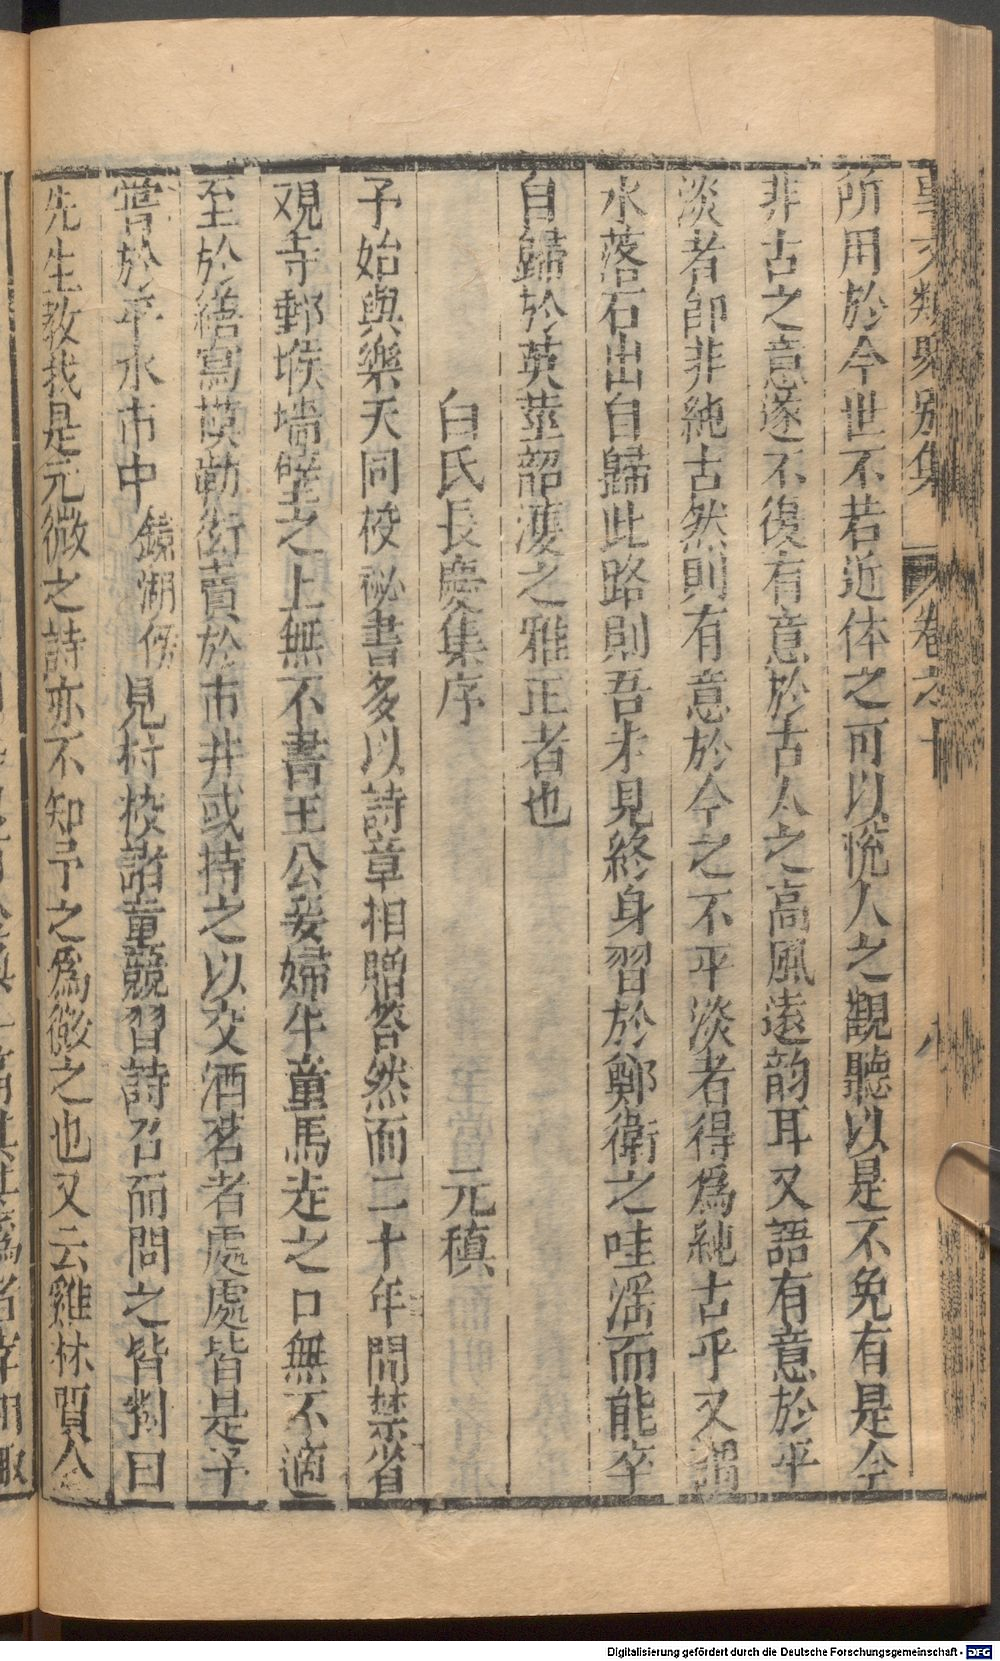 事文類聚別集 卷之十 八
所用於今世不若近体之可以悅人之觀聽以是不免有是今
非古之意遂不復有意於古人之高風遠韵耳又語有意於平
淡者即非純古然則有意於今之不平淡者得爲純古乎又謂
水落石出自歸此路則吾未見終身習於鄭衛之哇滛而能卒
自歸於英莖韶濩之雅正者也
白氏長慶集序 元稹
予始與樂天同校祕書多以詩章相贈答然而二十年間禁省
观寺郵堠墻壁之上無不書王公妾婦牛童馬走之口無不適
至於繕寫模勒衒賣於市井或持之以交酒茗者處處皆是予
嘗於平水市中鏡湖傍見村校諸童競習詩召而問之皆對曰
先生教我是元微之詩亦不知予之爲微之也又云雞林賈人
Digitalisierung gefördert durch die Deutsche Forschungsgemeinschaft - DFG